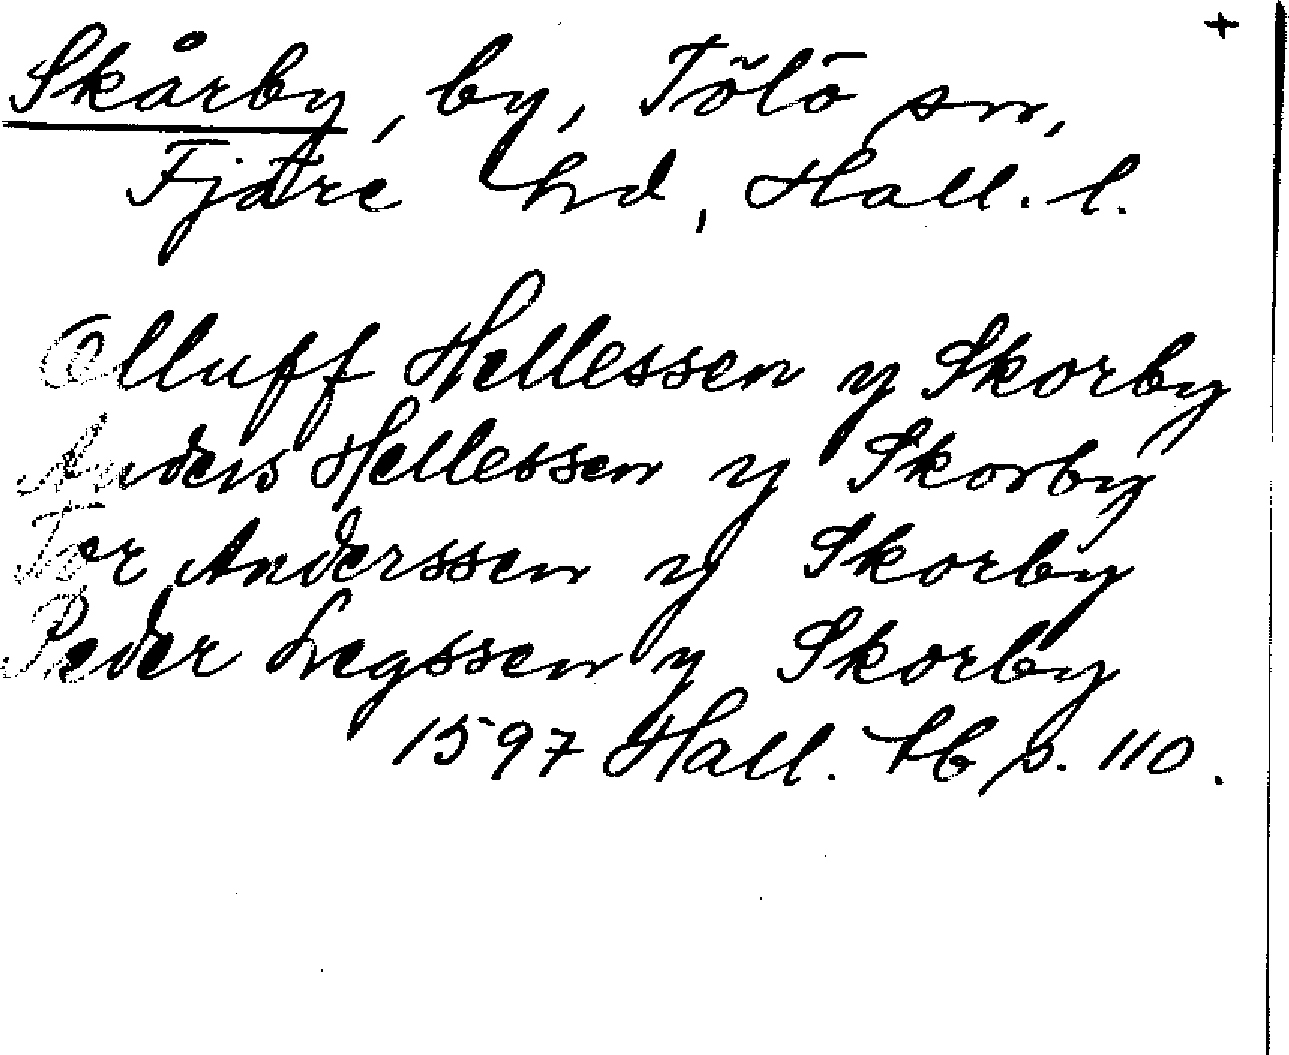 +
Skårby, by, Tölö sn,
Fjäre hd, Hall. l.
Olluff Hellessen y Skorby
Anders Hellessen y Skorby
Tor Anderssen y Skorby
Peder Legssen y Skorby
1597 Hall. tb p. 110.